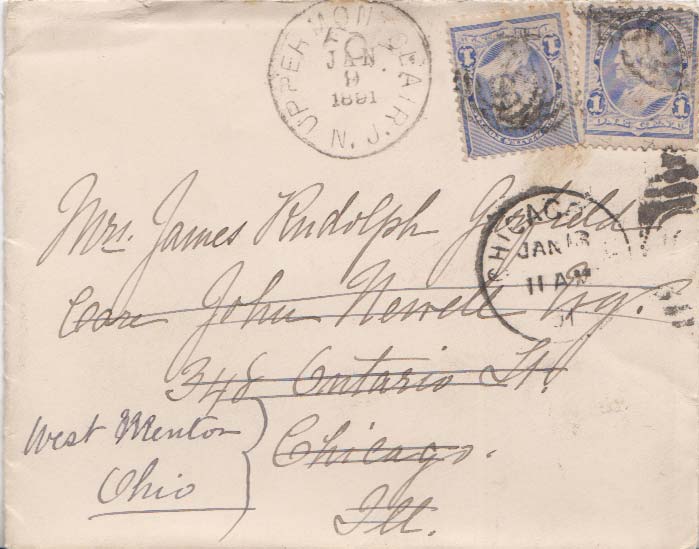 UPPER MONTCLAIR N.J.
JAN
9
1891
1
1
1
ONE CENT
CHICAGO
JAN 13
11 AM
91
Mrs. James Rudolph Garfield
Care John Newell Esq.
348 Ontario St.
Chicago.
Ill.
West Mentor
Ohio